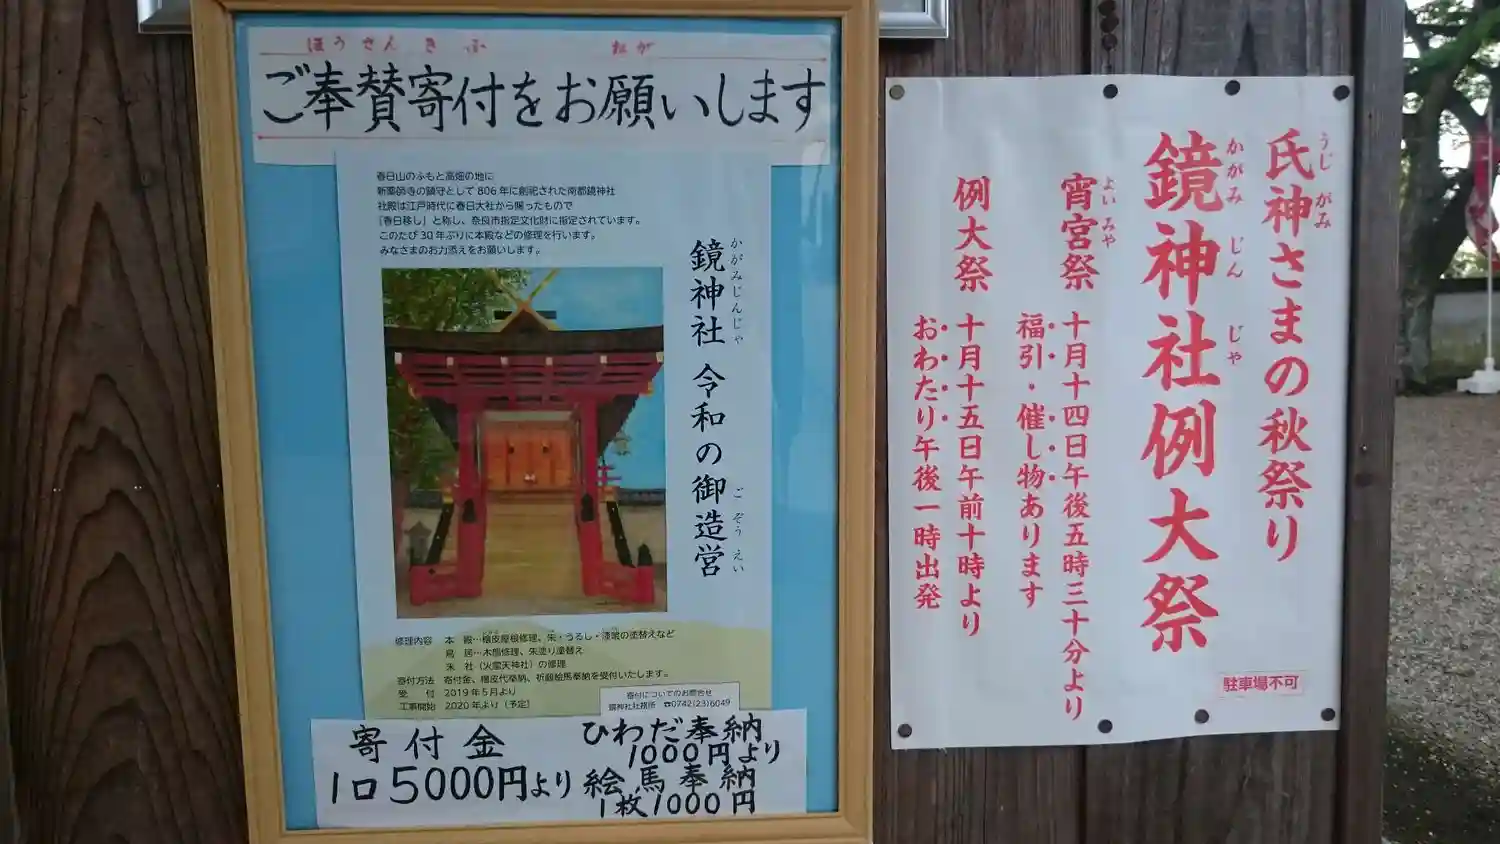 ほうさん きふ ねが
ご奉賛寄付をお願いします
春日山のふもと高畑の地に
新薬師寺の鎮守として806年に創祀された南都鏡神社
社殿は江戸時代に春日大社から賜ったもので
「春日移し」と称し、奈良市指定文化財に指定されています。
このたび30年ぶりに本殿などの修理を行います。
みなさまのお力添えをお願いします。
かがみじんじゃ
鏡神社 令和の御造営
ごぞうえい
修理内容 本 殿…檜皮屋根修理、朱・うるし・漆喰の塗替えなど
鳥 居…木部修理、朱塗り塗替え
末 社（火雷天神社）の修理
寄付方法 寄付金、檜皮代奉納、祈願絵馬奉納を受付いたします。
受 付 2019年5月より
工事開始 2020年より（予定）
寄付についてのお問合せ
鏡神社社務所 ☎0742(23)6049
寄付金
1口5000円より
ひわだ奉納
1000円より
絵馬奉納
1枚1000円
うじ がみ
氏神さまの秋祭り
かがみ じん じゃ
鏡神社例大祭
よい みや
宵宮祭 十月十四日午後五時三十分より
福引・催し物あります
例大祭 十月十五日午前十時より
おわたり午後一時出発
駐車場不可